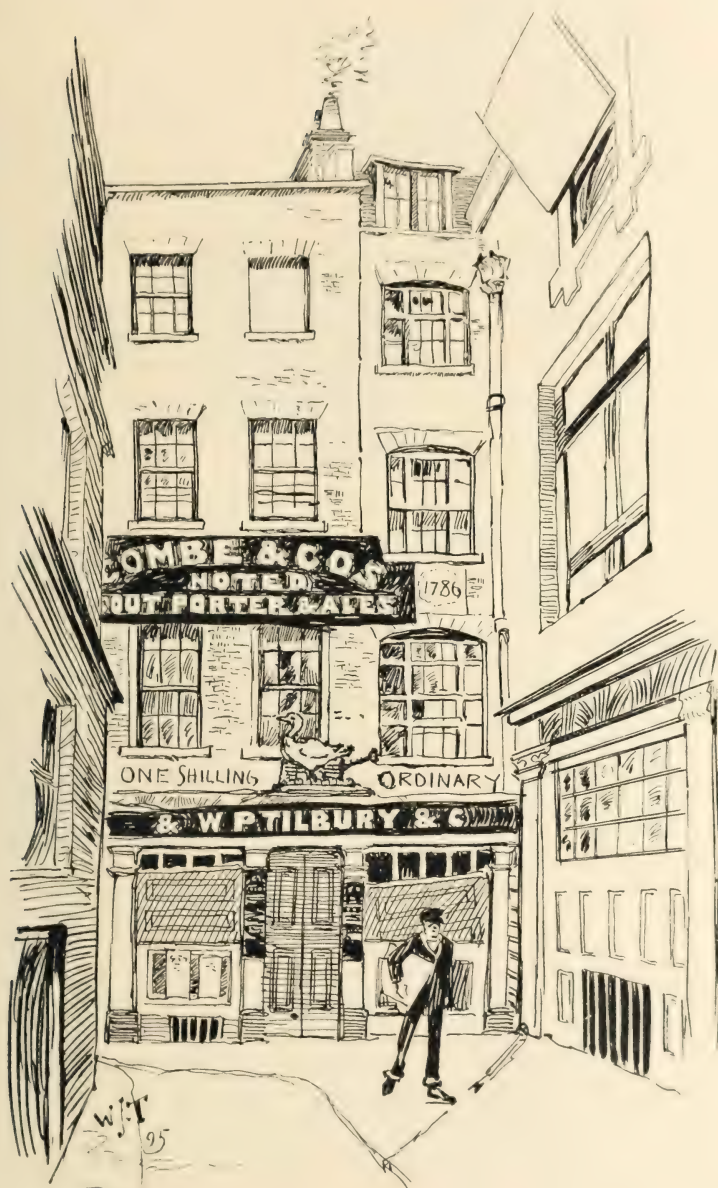 OMBE & CO'S
NOTED
OUT PORTER & ALES
1786
ONE SHILLING ORDINARY
& W P. TILBURY & C
W J T
95